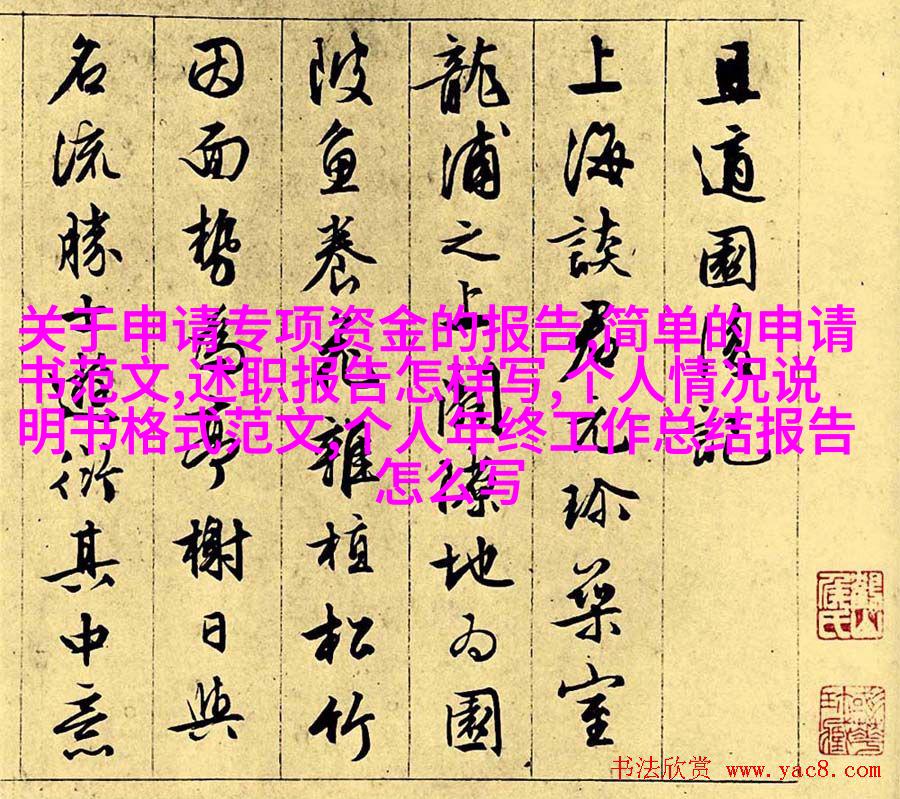 且適園後記
上海談君元珍築室
龍浦之上隙地为園
陂魚養花雜植松竹
因面勢為亭榭日與
名流勝士遊衍其中意
关于申请专项资金的报告,简单的申请
书范文,述职报告怎样写,个人情况说
明书格式范文,个人年终工作总结报告
怎么写
书法欣赏 www.yac8.com